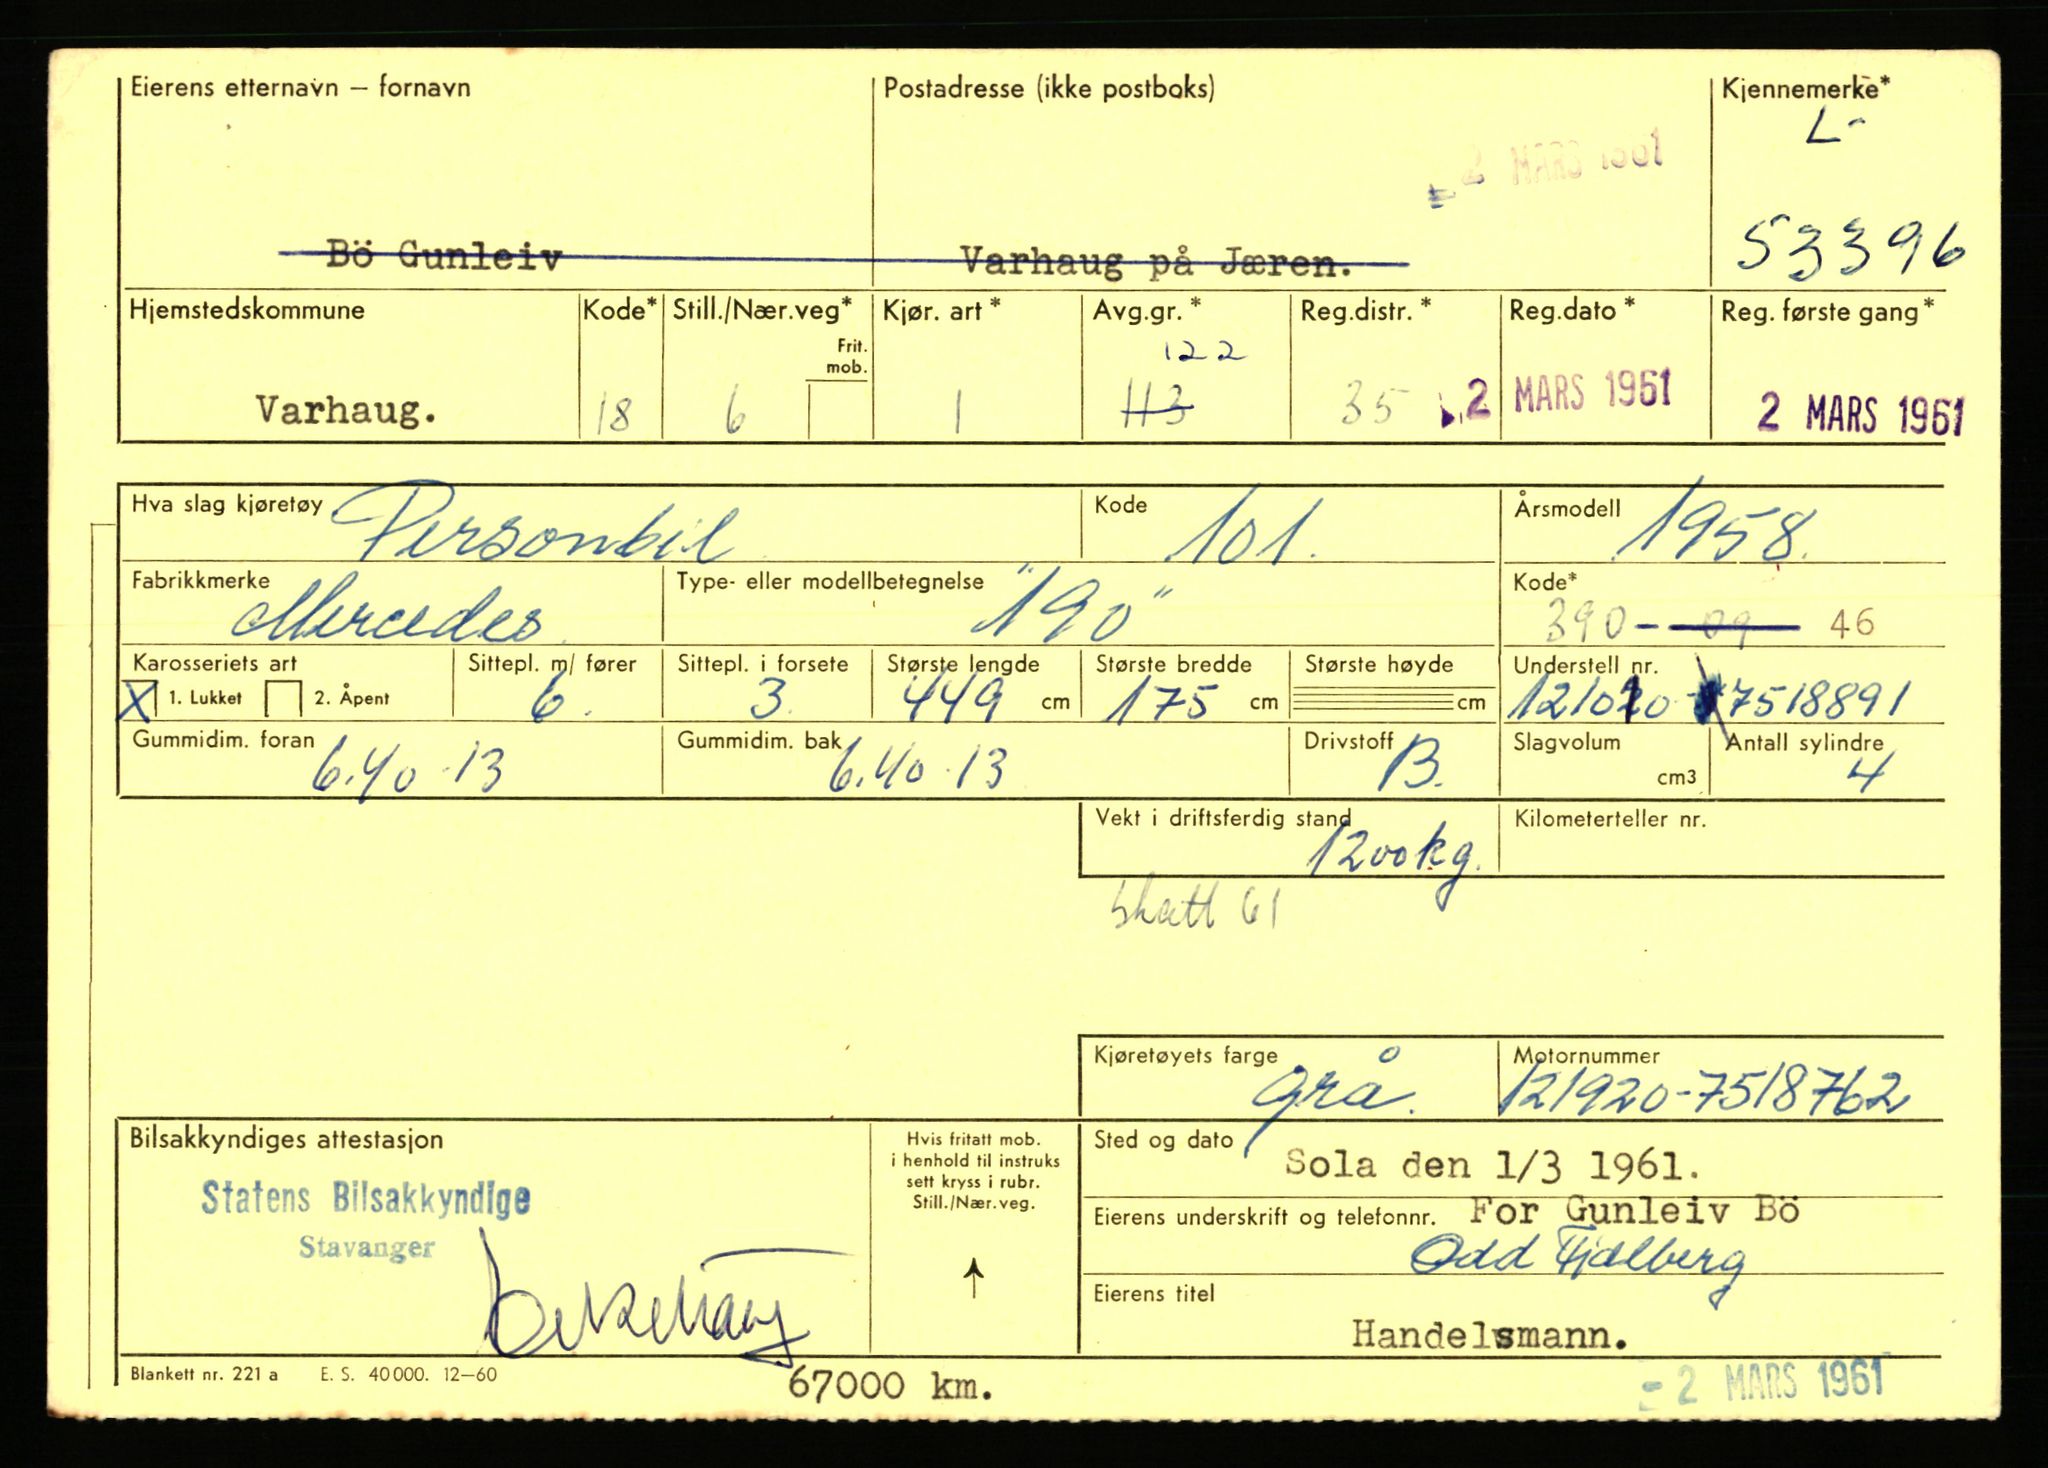 Eierens etternavn – fornavn
Postadresse (ikke postboks)
Kjennemerke*
L-
2 MARS 1961
53396
Bö Gunleiv
Varhaug på Jæren.
Hjemstedskommune
Kode*
Still./Nær.veg*
Kjør. art *
Avg.gr. *
Reg.distr. *
Reg.dato *
Reg. første gang *
Frit.
mob.
122
Varhaug.
18
6
1
113
35
2 MARS 1961
2 MARS 1961
Hva slag kjøretøy
Personbil
Kode
101.
Årsmodell
1958.
Fabrikkmerke
Mercedes
Type- eller modellbetegnelse
"190"
Kode*
390 – 09 46
Karosseriets art
Sittepl. m/ fører
Sittepl. i forsete
Største lengde
Største bredde
Største høyde
Understell nr.
X 1. Lukket
2. Åpent
6.
3.
449 cm
175 cm
cm
121020-7518891
Gummidim. foran
6.40-13
Gummidim. bak
6.40-13
Drivstoff
B.
Slagvolum
cm3
Antall sylindre
4
Vekt i driftsferdig stand
1200kg.
Kilometerteller nr.
skatt 61
Kjøretøyets farge
grå.
Motornummer
121920-7518762
Bilsakkyndiges attestasjon
Hvis fritatt mob.
i henhold til instruks
sett kryss i rubr.
Still./Nær.veg.
Sted og dato
Sola den 1/3 1961.
Statens Bilsakkyndige
Stavanger
Eierens underskrift og telefonnr.
For Gunleiv Bö
Odd Fjelberg
Eierens titel
Handelsmann.
Blankett nr. 221 a
E. S. 40000. 12–60
67000 km.
- 2 MARS 1961